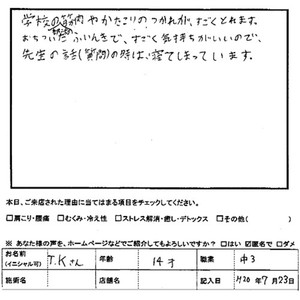 学校の筋肉やかたこりのつかれが、すごくとれます。
おちついたふいんきで、すごく気持ちがいいので、
先生の話(質問)の時は寝てしまっています。
本日、ご来店された理由に当てはまる項目をチェックしてください。
□肩こり・腰痛 □むくみ・冷え性 □ストレス解消・癒し・デトックス □その他( )
※ あなた様の声を、ホームページなどでご紹介してもよろしいですか? □はい ☑匿名で □ダメ
お名前 (イニシャル可) T.Kさん 年齢 14才 職業 中3
施術名 店舗名 H20年7月23日